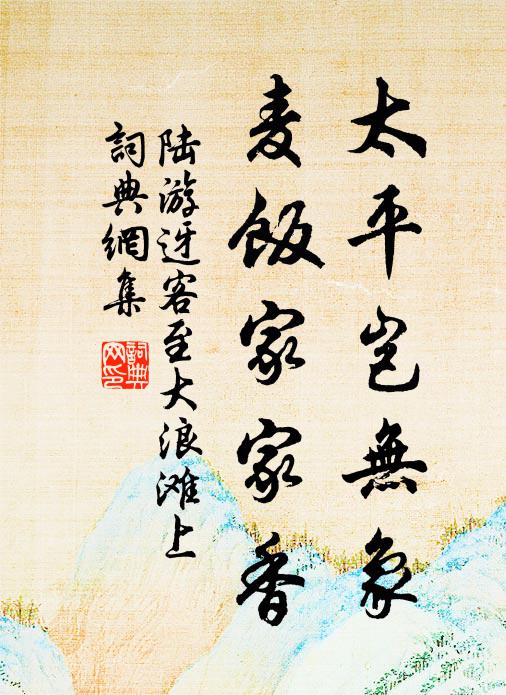 太平岂無象
麦飯家家香
陆游迓客至大浪滩上
詞典網集
詞典網印